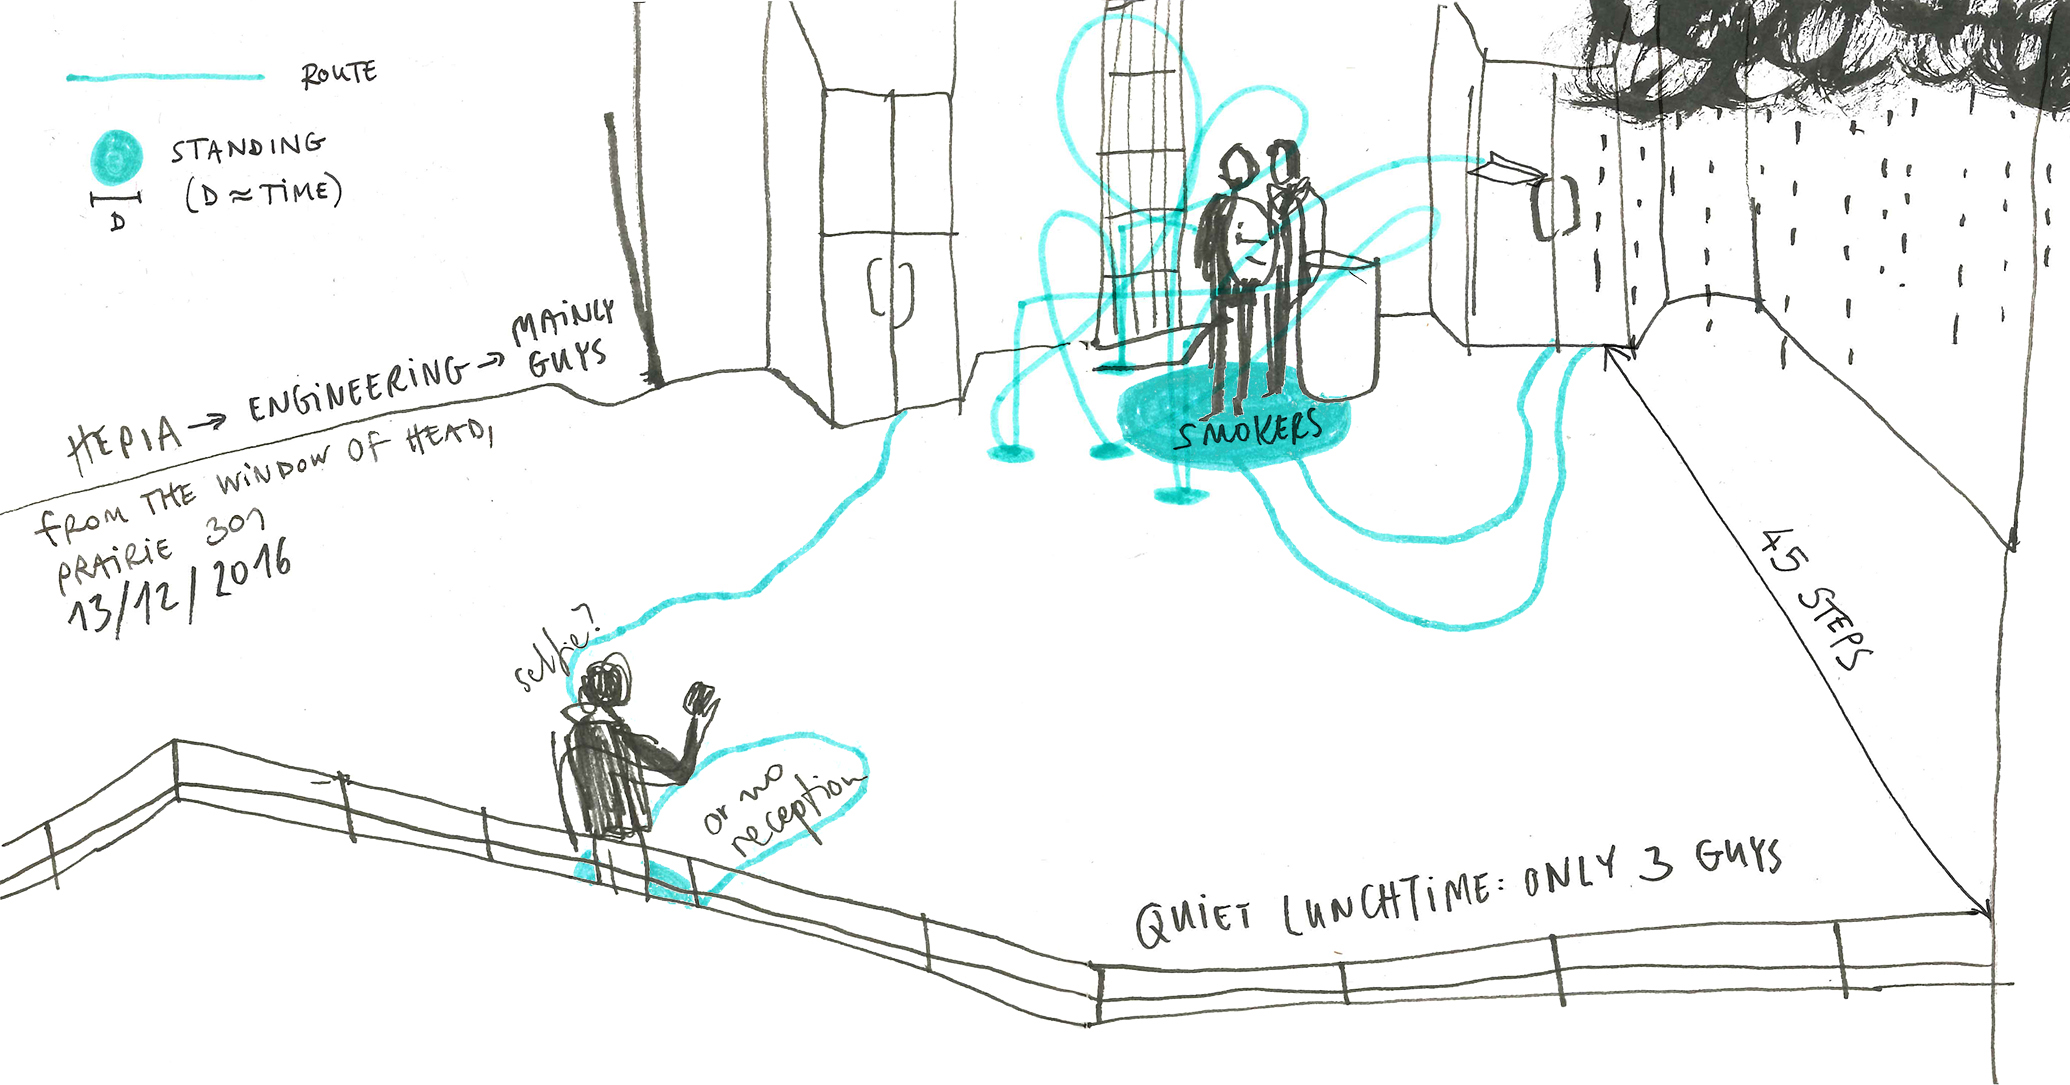 ROUTE
STANDING
(D ≈ TIME)
D
HEPIA → ENGINEERING → MAINLY
GUYS
FROM THE WINDOW OF HEAD,
PRAIRIE 301
13/12/2016
SMOKERS
45 STEPS
selfie?
or no
reception
QUIET LUNCHTIME: ONLY 3 GUYS